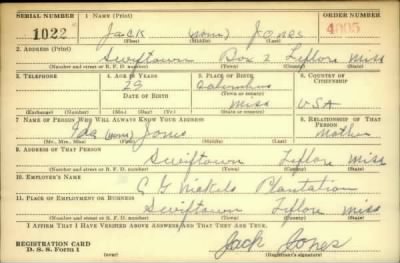 SERIAL NUMBER 1. NAME (Print) ORDER NUMBER
1022 Jack (none) Jones 4005
(First) (Middle) (Last)
2. ADDRESS (Print)
Swiftown Box 2 Leflore Miss
(Number and street or R. F. D. number) (Town) (County) (State)
3. TELEPHONE 4. AGE IN YEARS 5. PLACE OF BIRTH 6. COUNTRY OF CITIZENSHIP
29 Columbus
DATE OF BIRTH (Town or county)
Miss USA
(Exchange) (Number) (Mo.) (Day) (Yr.) (State or country)
7. NAME OF PERSON WHO WILL ALWAYS KNOW YOUR ADDRESS 8. RELATIONSHIP OF THAT PERSON
Ida (none) Jones Mother
(Mr., Mrs., Miss) (First) (Middle) (Last)
9. ADDRESS OF THAT PERSON
Swiftown Leflore Miss
(Number and street or R. F. D. number) (Town) (County) (State)
10. EMPLOYER'S NAME
Plantation
11. PLACE OF EMPLOYMENT OR BUSINESS
Swiftown Leflore Miss
(Number and street or R. F. D. number) (Town) (County) (State)
I AFFIRM THAT I HAVE VERIFIED ABOVE ANSWERS AND THAT THEY ARE TRUE.
REGISTRATION CARD Jack Jones
D. S. S. Form 1 (over) (Registrant's signature)